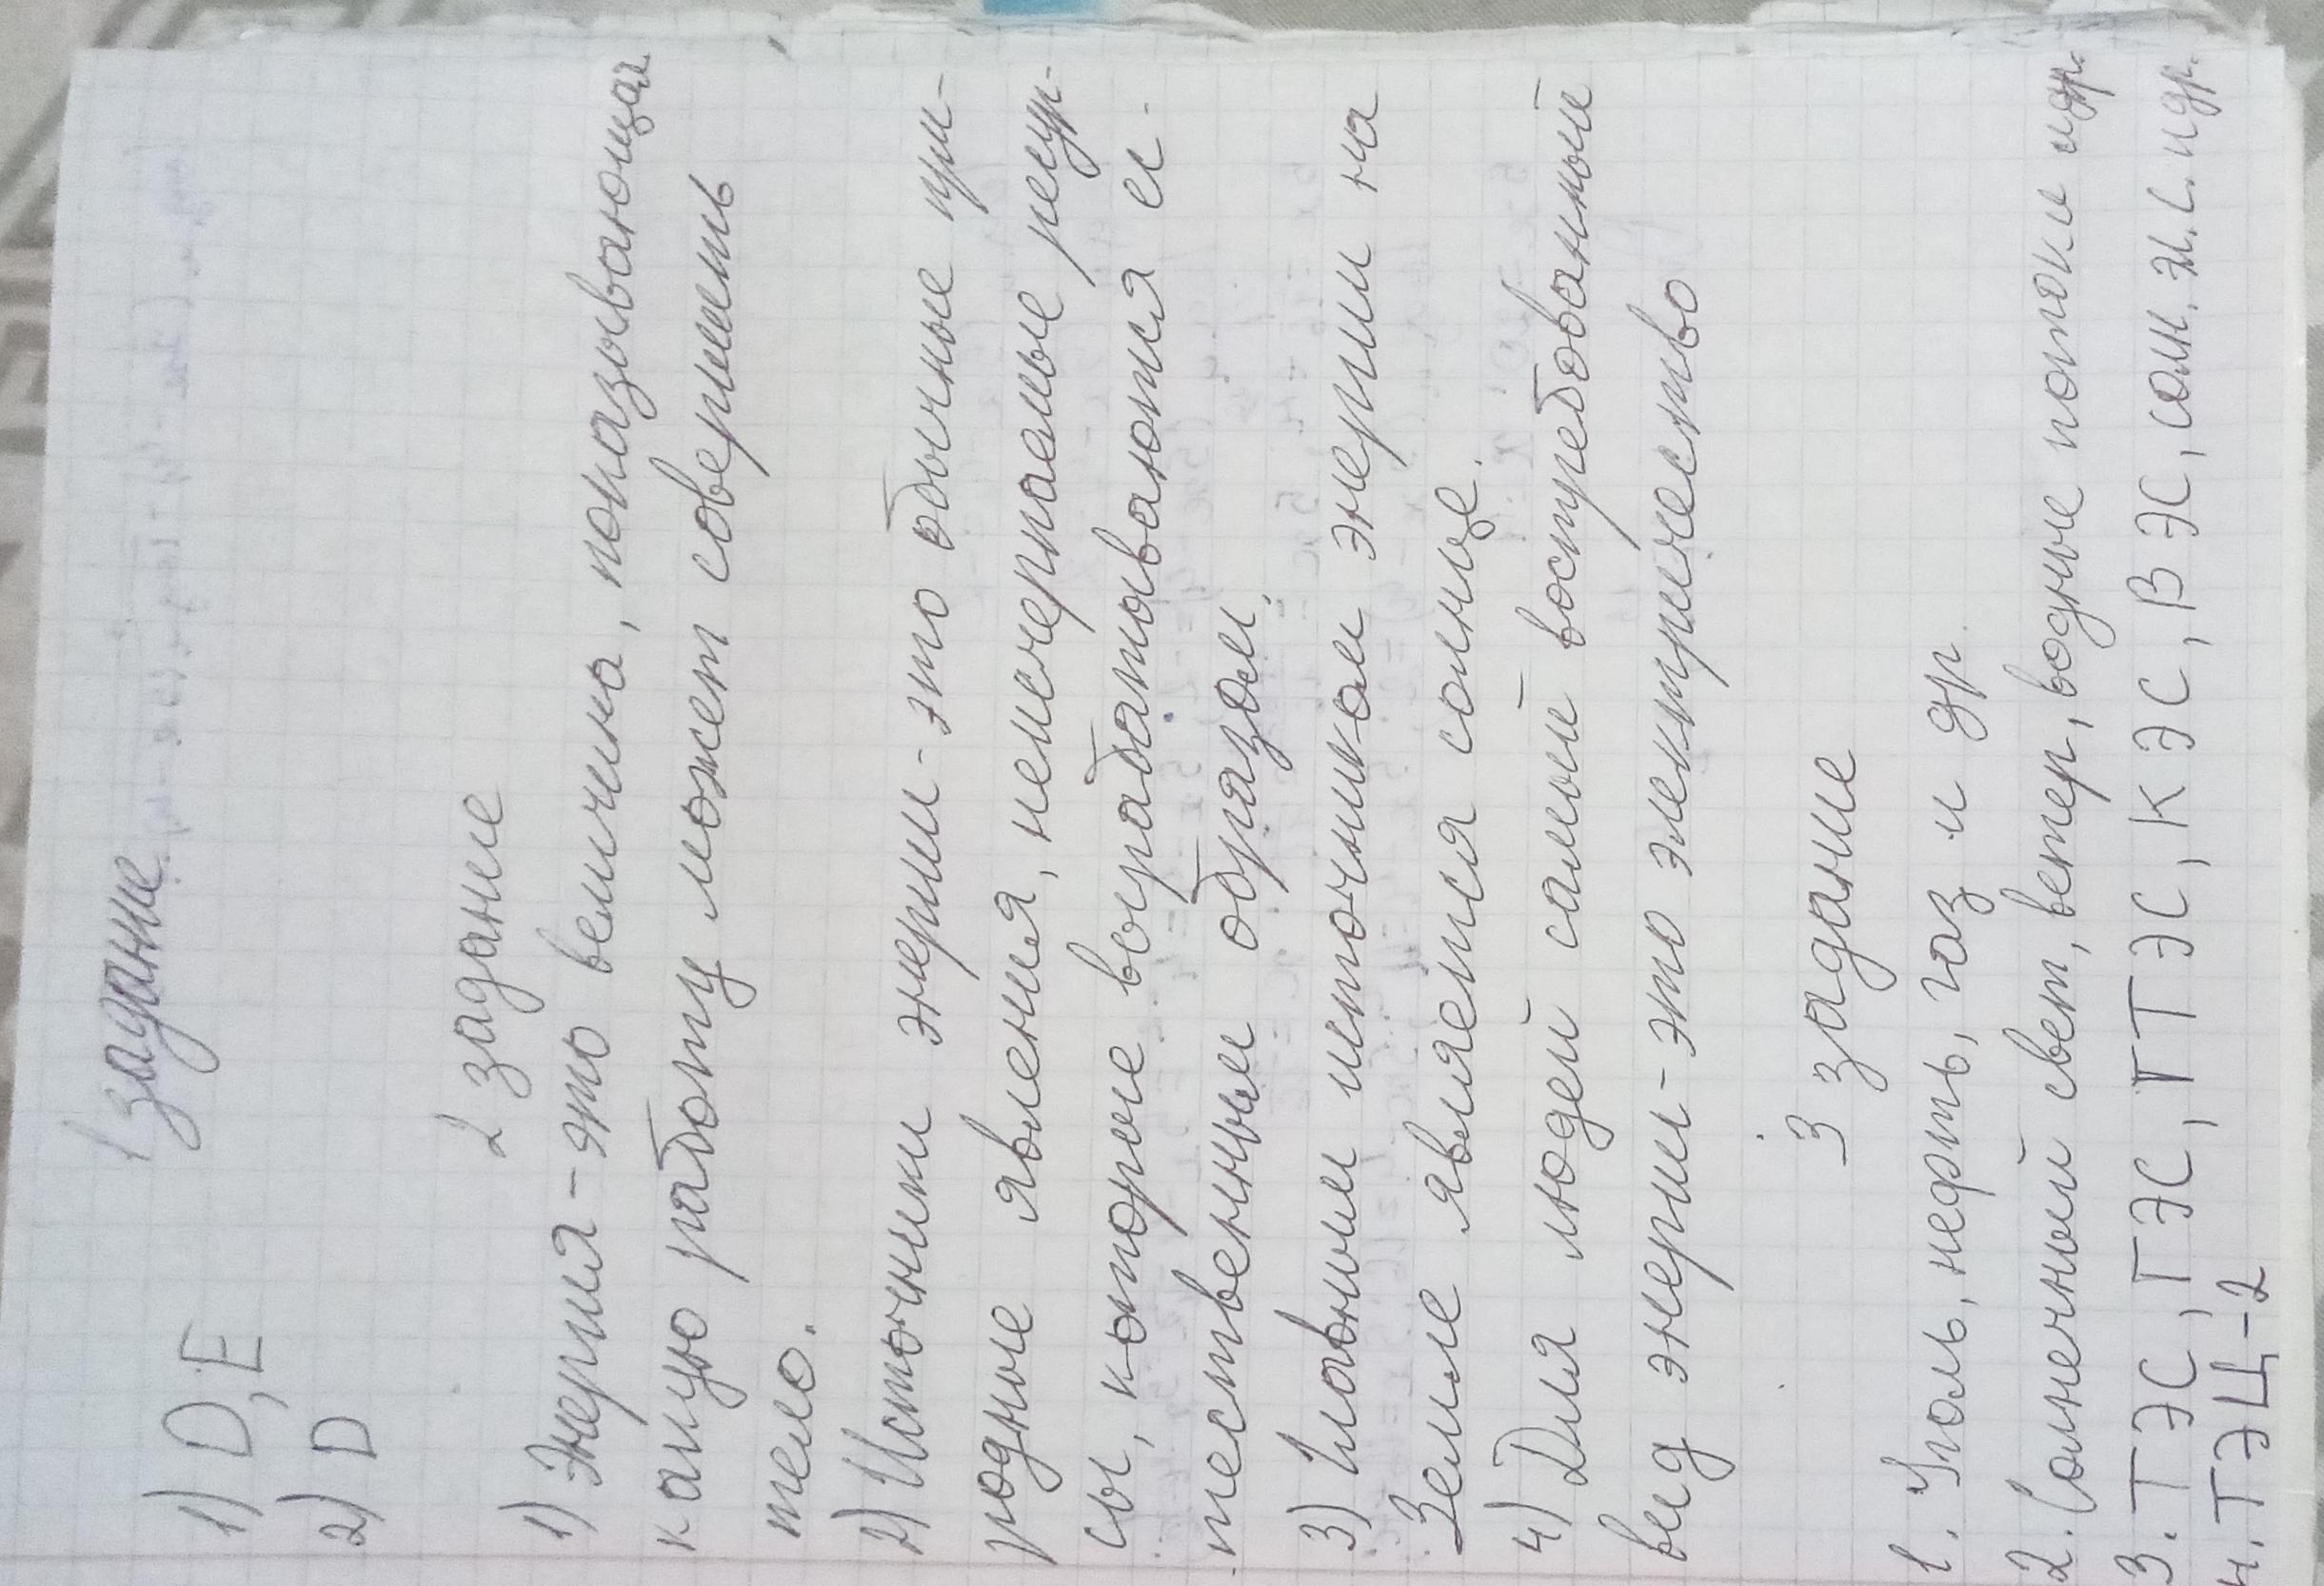 1 задание
1) D, E
2) D
2 задание
1) Энергия - это величина, показывающая
какую работу может совершить
тело.
2) Источники энергии - это обычные при-
родные явления, неисчерпаемые ресур-
сы, которые вырабатываются ес-
тественным образом.
3) Главным источником энергии на
Земле является солнце.
4) Для людей самый востребованный
вид энергии - это электричество
3 задание
1. Уголь, нефть, газ и др.
2. Солнечный свет, ветер, водные потоки и др.
3. ТЭС, ГЭС, ГТЭС, КЭС, ВЭС, солн. эл. с. и др.
4. ТЭЦ-2